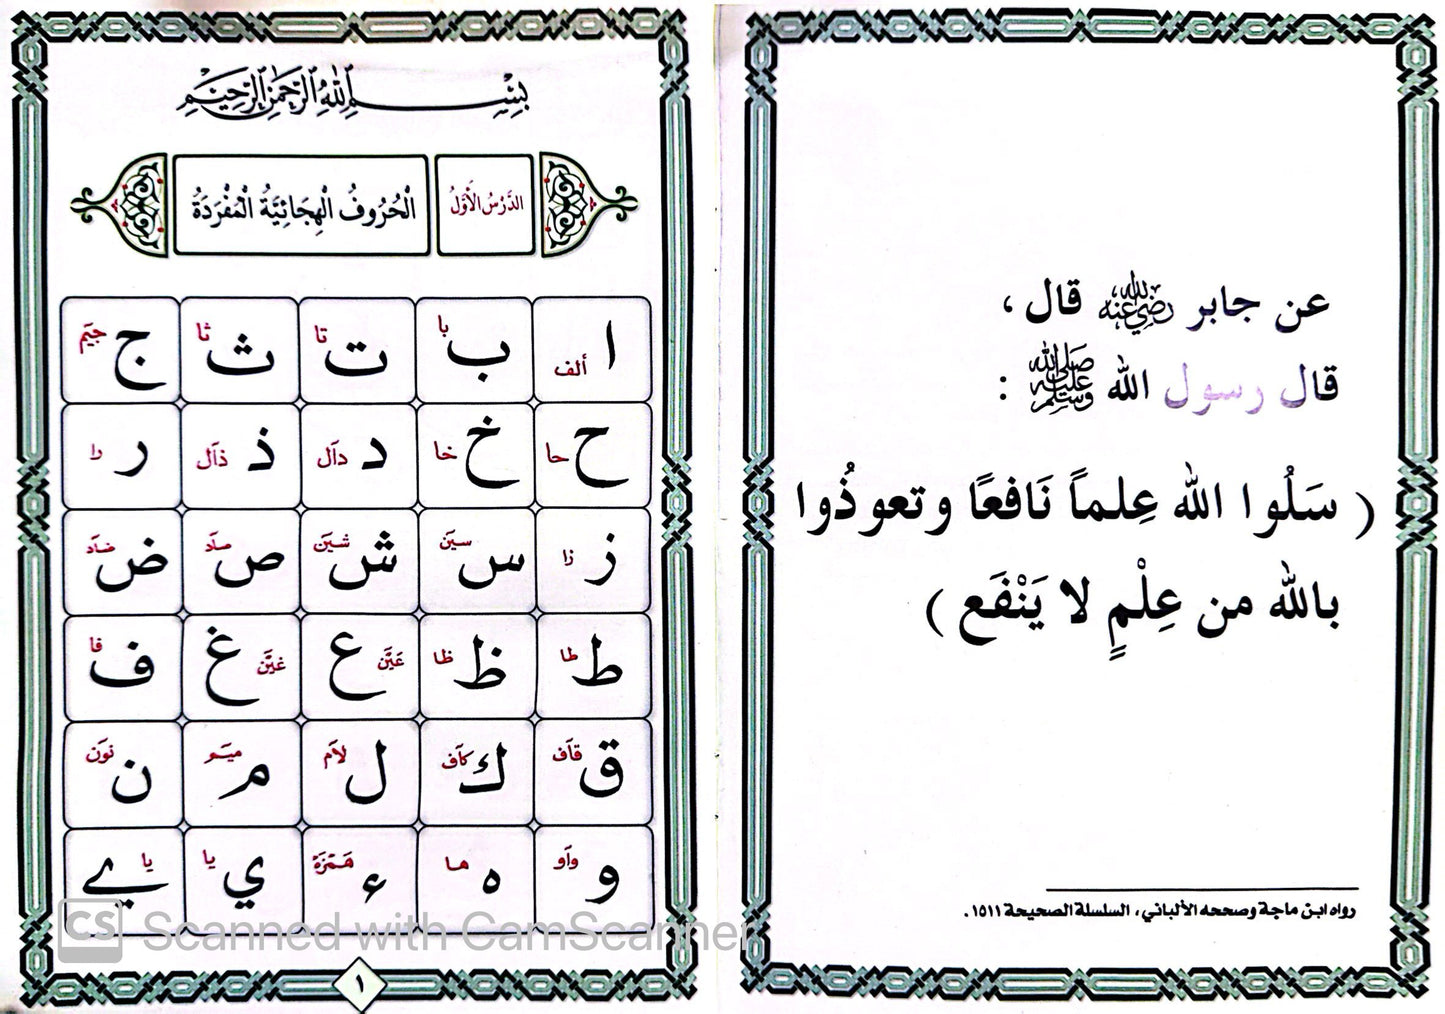 عن جابر رضي الله عنه قال ،
قال رسول الله صلى الله عليه وسلم :
( سَلُوا الله عِلماً نَافعًا وتعوذُوا
بالله من عِلْمٍ لا يَنْفَع )
رواه ابن ماجة وصححه الألباني، السلسلة الصحيحة ١٥١١.
بِسْمِ اللَّهِ الرَّحْمَٰنِ الرَّحِيمِ
الدَّرْسُ الْأَوَّلُ الْحُرُوفُ الْهِجَائِيَّةُ الْمُفْرَدَةُ
ا ألف ب با ت تا ث ثا ج جيٓم
ح حا خ خا د دآل ذ ذآل ر را
ز زا س سيٓن ش شيٓن ص صآد ض ضآد
ط طا ظ ظا ع عَيٓن غ غيٓن ف فا
ق قآف ك كآف ل لآم م ميٓم ن نوٓن
و وآو ه ها ء هَمْزَة ي يا ے يا
CS Scanned with CamScanner
١